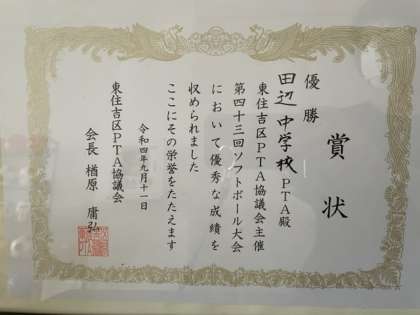 賞状
優勝
田辺中学校PTA殿
東住吉区PTA協議会主催
第四十三回ソフトボール大会
において優秀な成績を
収められました
ここにその栄誉をたたえます
令和四年九月十一日
東住吉区PTA協議会
会長 楢原 庸弘